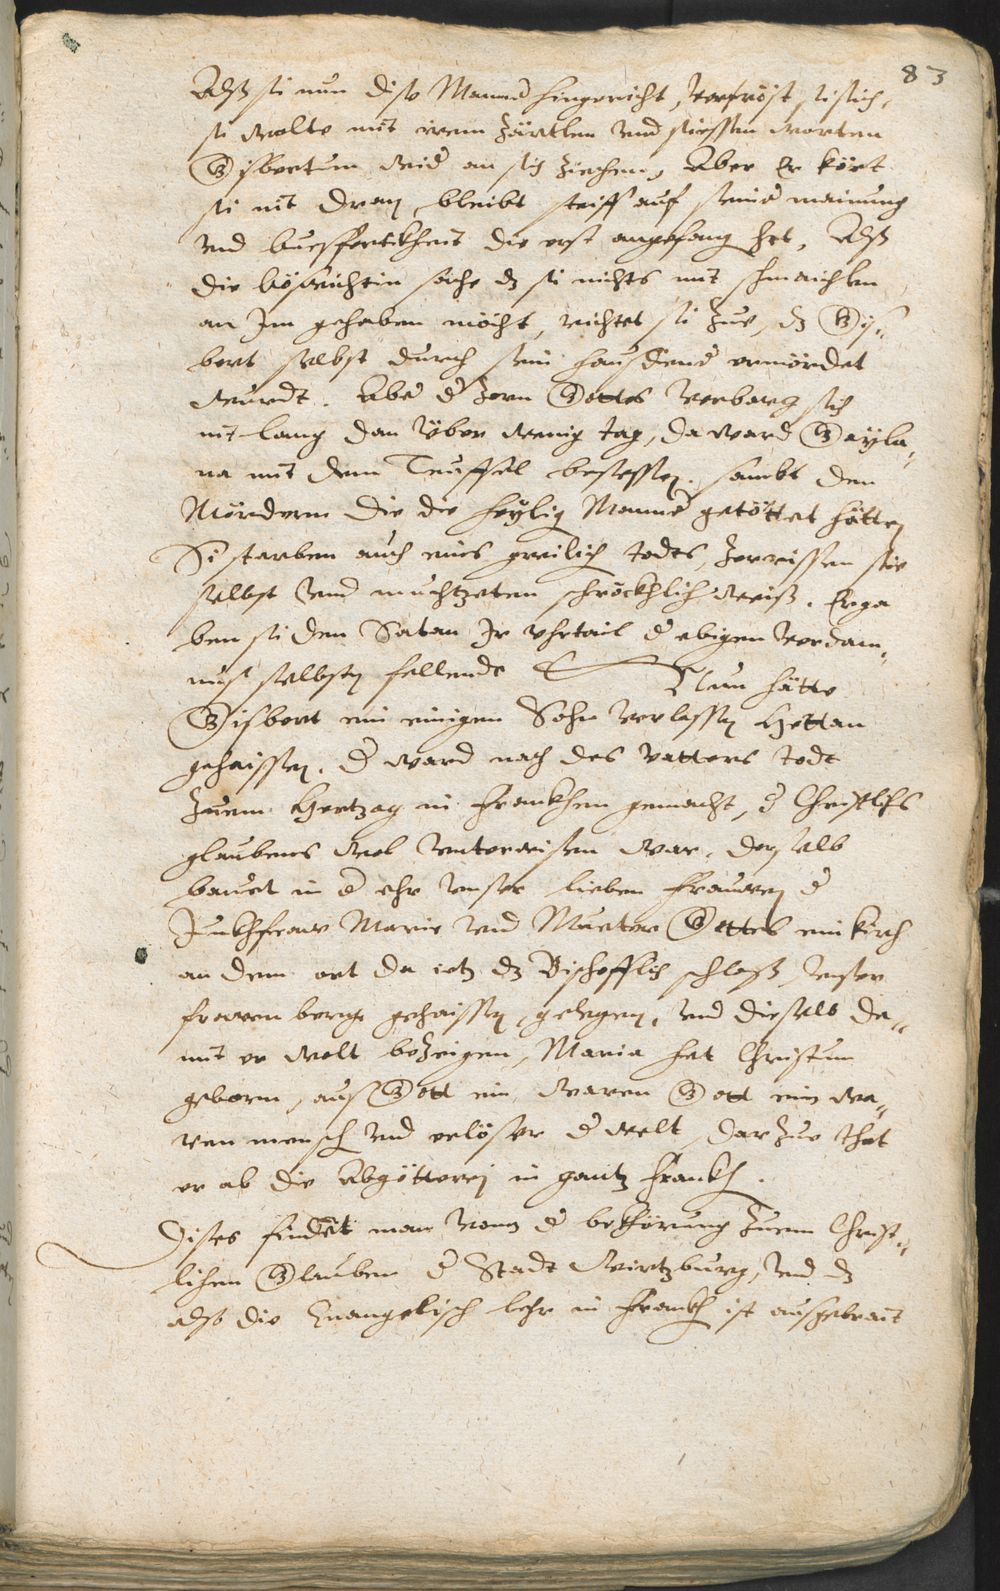 83
Alß sie nun dise Manner hingericht, verhofft si sich,
si wolte mit irem zärtlen vnd süessen worten
Gisbertum wider an sich ziechen, Aber Er kört
si nit dran, bleibt steiff auf seiner mainung
vnd buesfertikheit die erst angefang het. Alß
die böswichtin sache dz si nichts mit schmaichlen
an Im gehaben möcht, richtet si zue, dz Gis„
bert selbst durch sein hausdiener ermördet
wurdt. Aber der Zorn Gottes verbarg sich
nit lang dan vber wenig tag, da ward Geyla„
na mit dem Teuffel besessen. sambt den
Mördern die die heylig Manner getöttet hätten
Si starben auch eines greilich todes, zerrissen sie
selbst vnd  schröckhlich weiß. Erga
ben si dem Satan Ir vhrtail der ebigen verdam„
nus selbsten fellende Nun hätte
Gisbert ein einigen Sohn verlassen Hettan
gehaissen. der ward nach des vatters todt
zuem Hertzog in Frankhen gemacht, der Christlichs
glaubens wol vnterwisen war. derselb
bauet in der ehr vnser lieben Frauwen der
Junkhfraw Marie vnd Mueter Gottes ein kirch
an dem ort da ietz dz Bischofflich schloß, vnser
frawen berg gehaissen, gelegen, vnd dieselb da„
mit er wolt bezeigen, Maria hat Christum
geborn, aus Gott ein waren Gott ein wa„
ren mensch vnd erlöser der welt, darzue thet
er ab die Abgötterej in gantz Frankh.
Dises findet man von der bekhörung zuem Christ„
lichen Glauben der Stadt Wirtzburg, vnd dz
also die Euangelisch lehr in Frankh ist ausgebrait